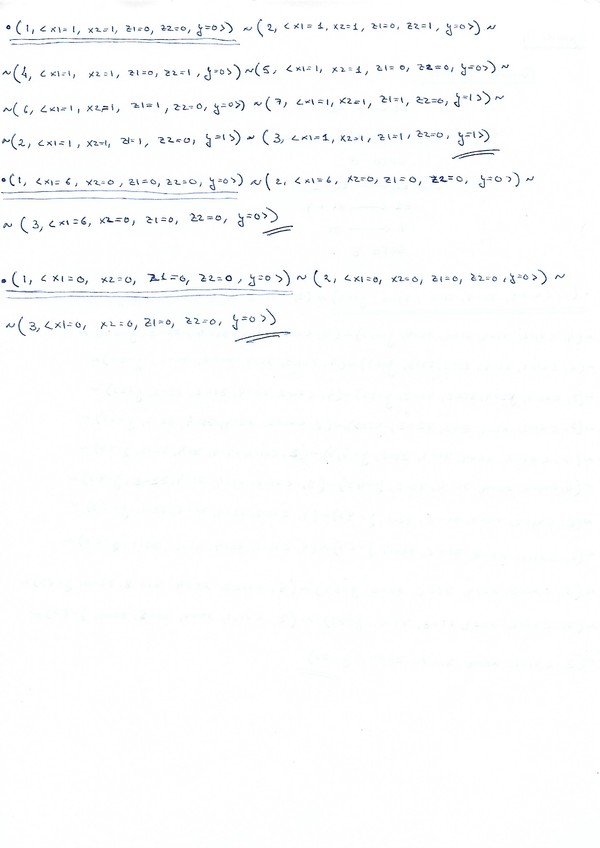 • (1, <x1=1, x2=1, z1=0, z2=0, y=0>) ~ (2, <x1=1, x2=1, z1=0, z2=1, y=0>) ~
~(4, <x1=1, x2=1, z1=0, z2=1, y=0>) ~ (5, <x1=1, x2=1, z1=0, z2=0, y=0>) ~
~(6, <x1=1, x2=1, z1=1, z2=0, y=0>) ~ (7, <x1=1, x2=1, z1=1, z2=0, y=1>) ~
~(2, <x1=1, x2=1, z1=1, z2=0, y=1>) ~ (3, <x1=1, x2=1, z1=1, z2=0, y=1>)
• (1, <x1=6, x2=0, z1=0, z2=0, y=0>) ~ (2, <x1=6, x2=0, z1=0, z2=0, y=0>) ~
~ (3, <x1=6, x2=0, z1=0, z2=0, y=0>)
• (1, <x1=0, x2=0, z1=0, z2=0, y=0>) ~ (2, <x1=0, x2=0, z1=0, z2=0, y=0>) ~
~(3, <x1=0, x2=0, z1=0, z2=0, y=0>)